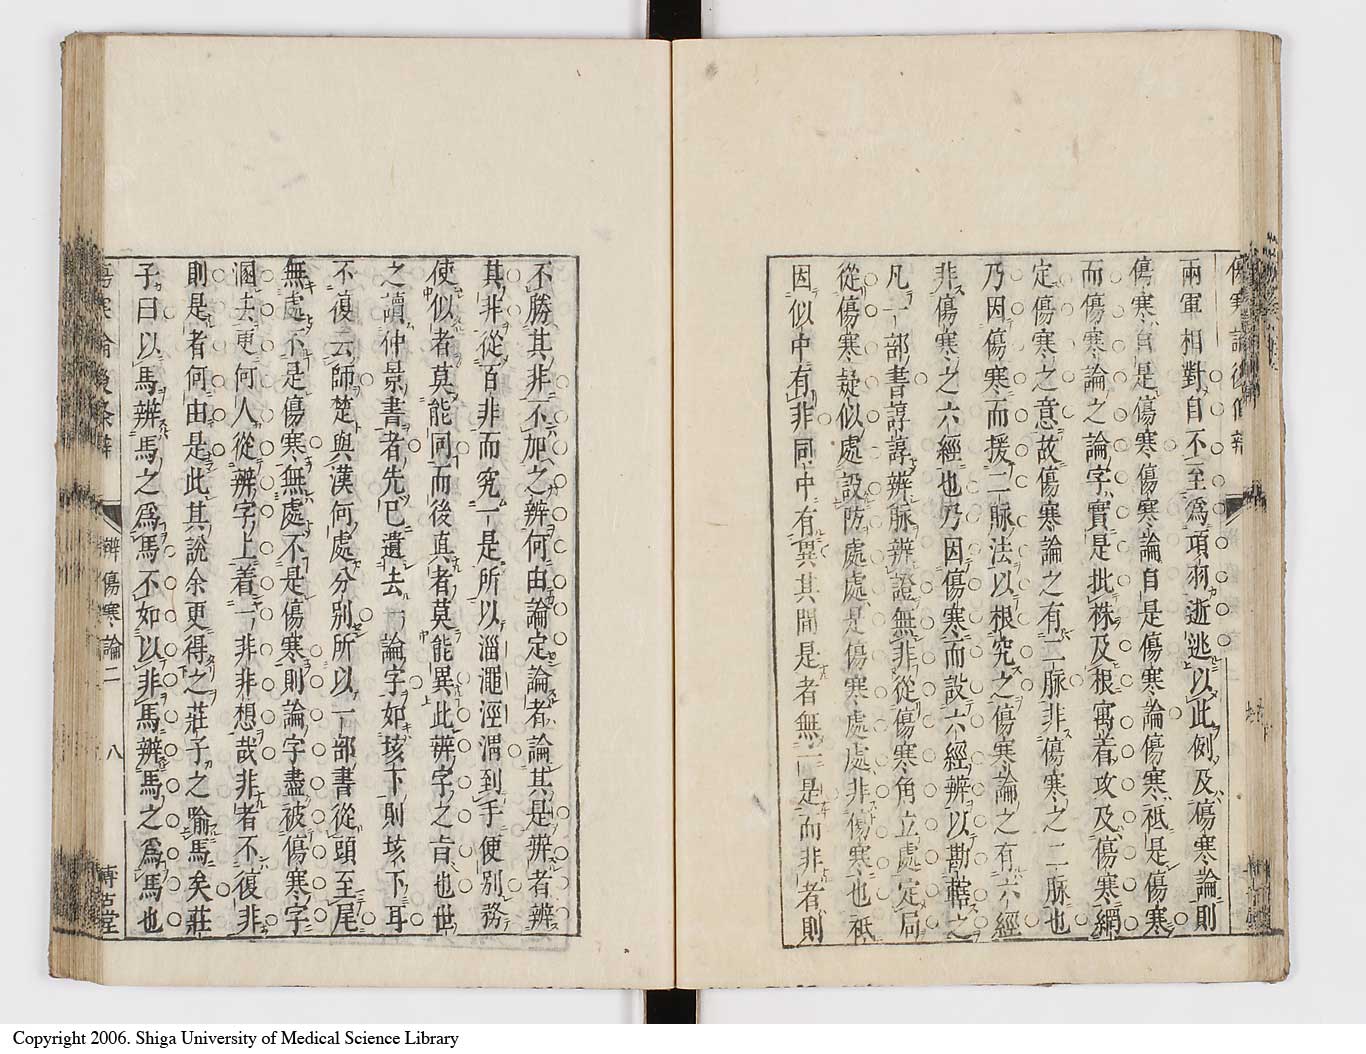 兩軍相對自不至爲項羽逝逃以此例及傷寒論則
傷寒自是傷寒傷寒論自是傷寒論傷寒祗是傷寒
而傷寒論之論字實是批株及根寓着攻及傷寒網
定傷寒之意故傷寒論之有一脉非傷寒之二脉也
乃因傷寒而援二脉法以根究之傷寒論之有六經
非傷寒之六經也乃因傷寒而設六經辨以勘轄之
凡一部書諄諄辨脉辨證無非從傷寒角立處定局
從傷寒疑似處設防處處是傷寒處處非傷寒也祗
因似中有非同中有異其間是者無一是而非者則
不勝其非不加之辨何由論定論者論其是辨者辨
其非從百非而究一是所以淄澠涇渭到手便別務
使似者莫能同而後真者莫能異此辨字之旨也世
之讀仲景書者先已遺去一論字如垓下則垓下耳
不復云師楚與漢何處分别所以一部書從頭至尾
無處不是傷寒無處不是傷寒則論字盡被傷寒字
溷去更何人從辨字上着一非非想哉非者不復非
則是者何由是此其說余更得之莊子之喻馬矣莊
子曰以馬辨馬之爲馬不如以非馬辨馬之爲馬也
傷寒論後条辨
辨傷寒論二
八
博古堂